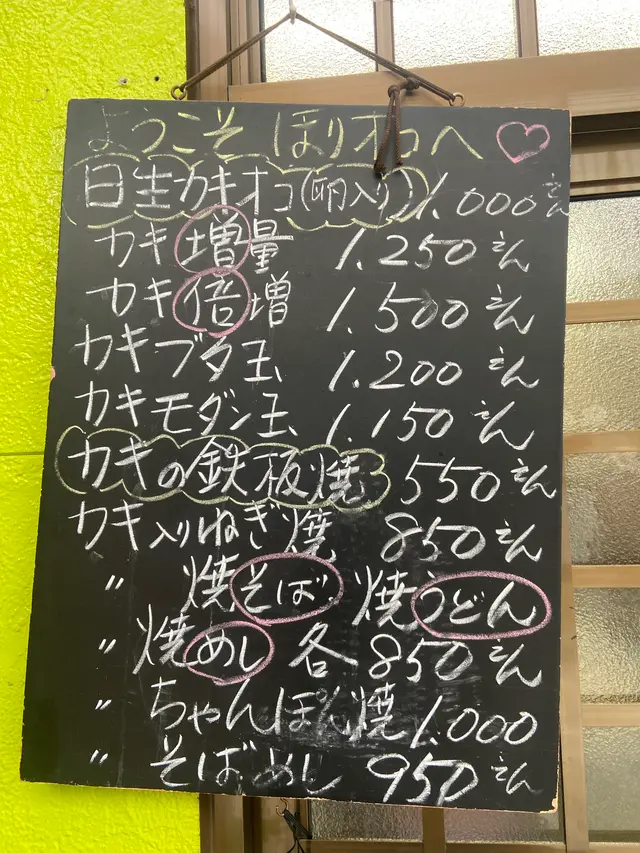 ようこそ ほりオコへ ♡
日生カキオコ(卵入り) 1.000えん
カキ増量 1.250えん
カキ倍増 1.500えん
カキブタ玉 1.200えん
カキモダン玉 1.150えん
カキの鉄板焼 550えん
カキ入りねぎ焼 850えん
〃 焼そば 焼うどん
〃 焼めし 各850えん
〃 ちゃんぽん焼 1.000
〃 そばめし 950えん